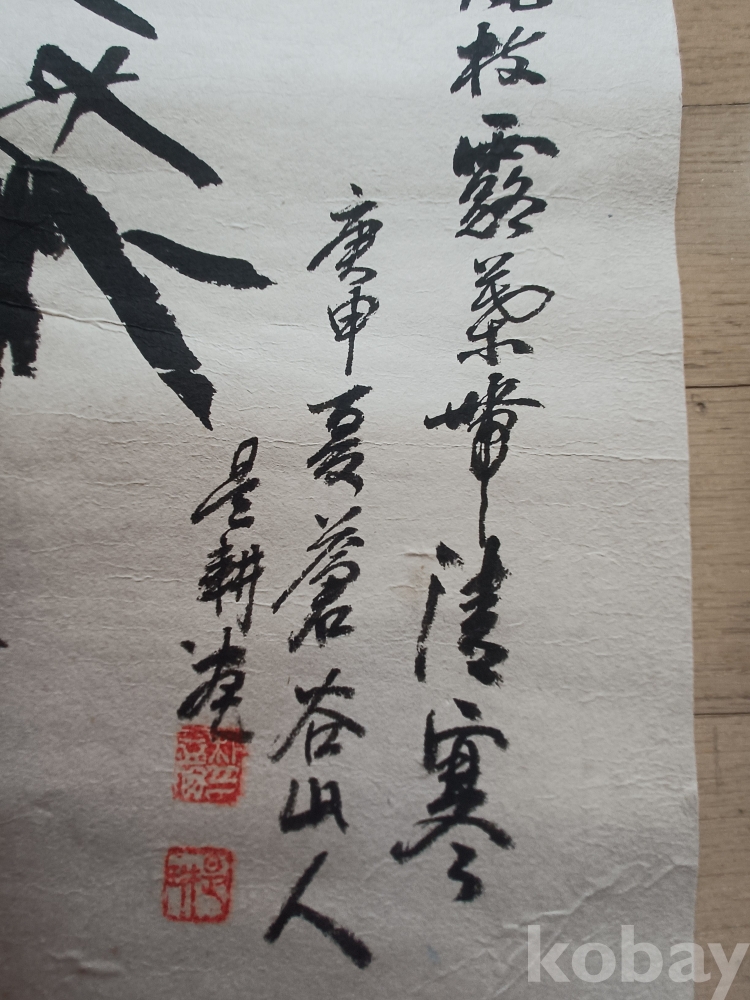 枝露葉帶清寒
庚申夏蒼谷山人
是耕
是耕
kobay